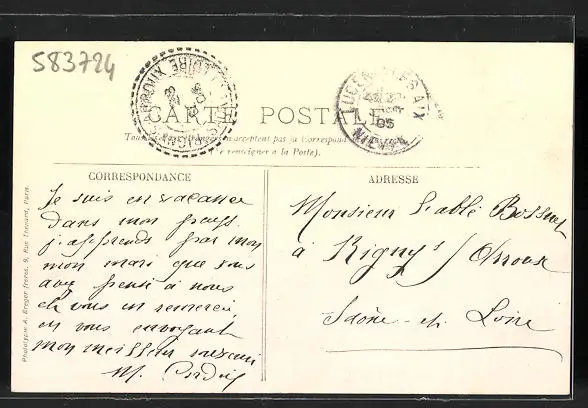 583724
CARTE POSTALE
(Tous les pays étrangers n'acceptent pas la Correspondance
se renseigner à la Poste).
CORRESPONDANCE
Je suis en vacances
dans mon pays.
j'apprends par mon
mon mari que vous
avez pensé à nous
et vous en remercie,
en vous envoyant
mon meilleur souvenir
M.
ADRESSE
Monsieur l'abbé Bossuet
à Rigny s/ Arroux
Saône-et-Loire
LUCENAY-LES-AIX
05
NIÈVRE
Phototypie A. Breger frères, 9, Rue Thénard, Paris.